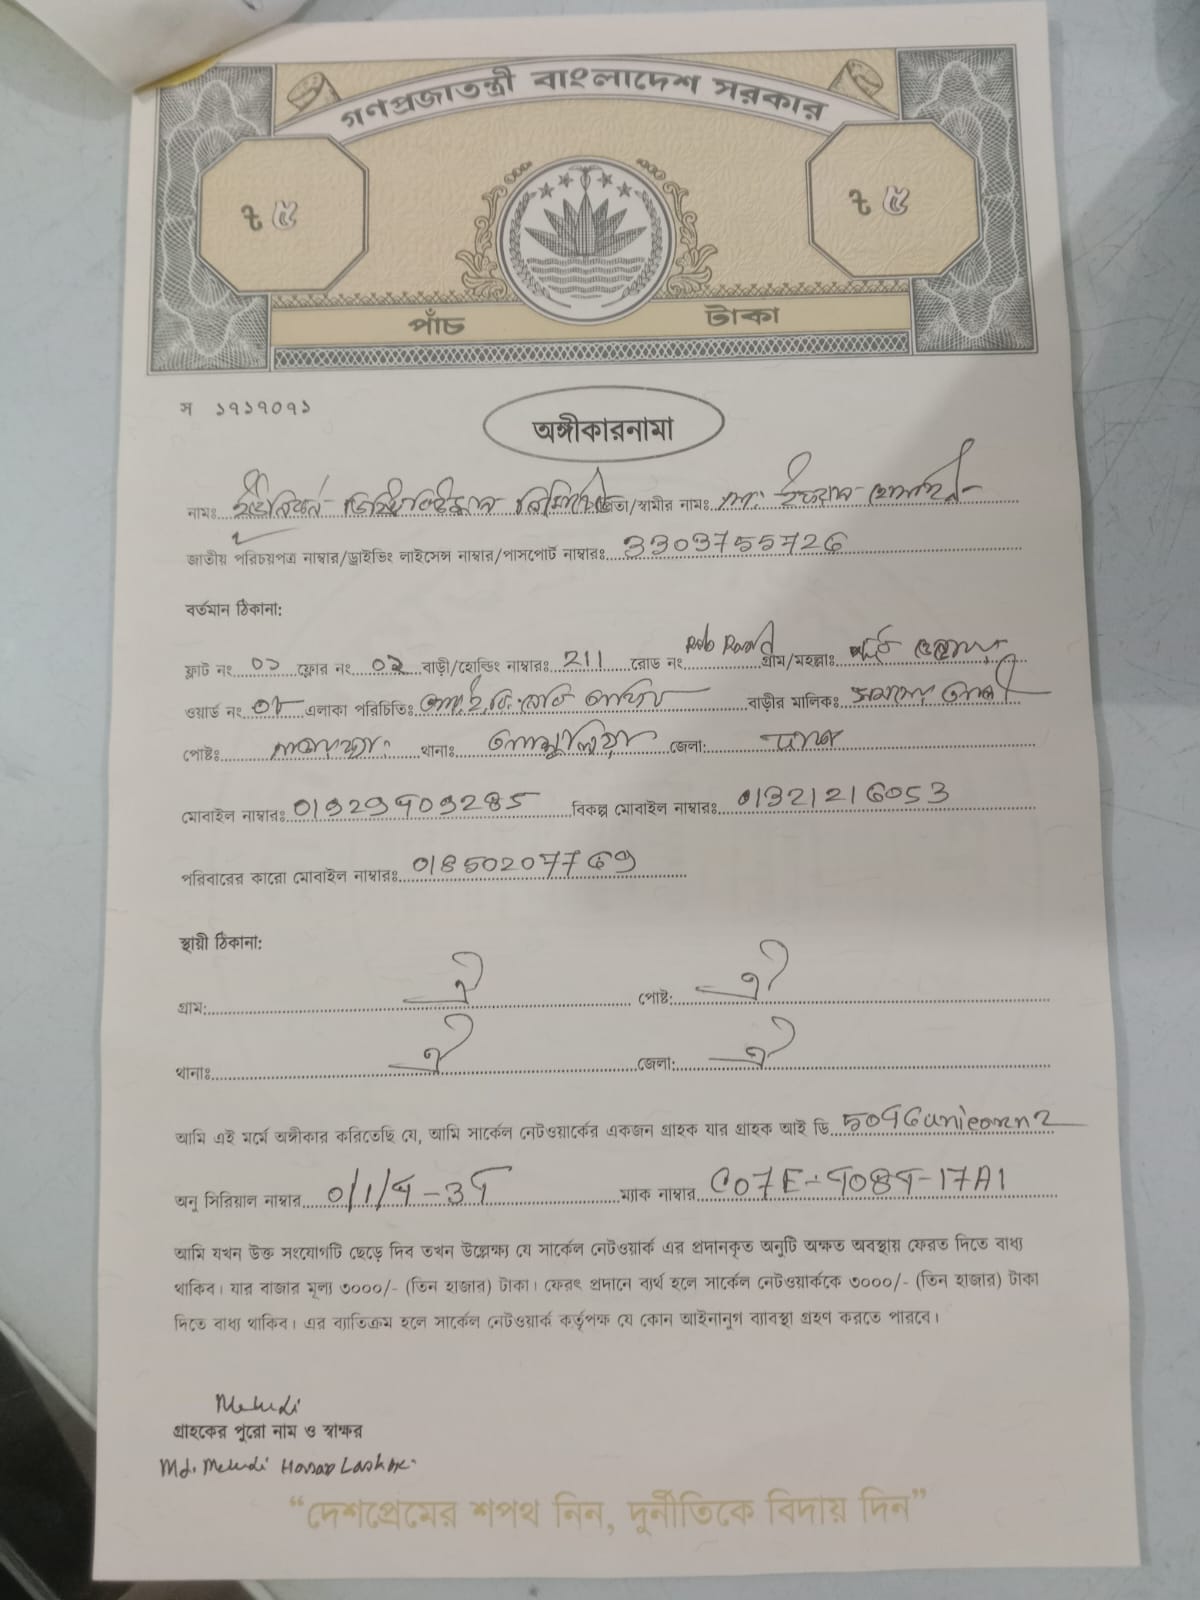 গণপ্রজাতন্ত্রী বাংলাদেশ সরকার
৳ ৫ ৳ ৫
পাঁচ টাকা
স ১৭১৭০৭১
অঙ্গীকারনামা
নামঃ পিতা/স্বামীর নামঃ মো: হোসাইন
জাতীয় পরিচয়পত্র নাম্বার/ড্রাইভিং লাইসেন্স নাম্বার/পাসপোর্ট নাম্বারঃ 3303755726
বর্তমান ঠিকানা:
ফ্লাট নং ০১ ফ্লোর নং ০২ বাড়ী/হোল্ডিং নাম্বারঃ 211 রোড নং Rob Road গ্রাম/মহল্লাঃ পূর্ব
ওয়ার্ড নং ০৮ এলাকা পরিচিতিঃ বাড়ীর মালিকঃ
পোষ্টঃ থানাঃ জেলা: ঢাকা
মোবাইল নাম্বারঃ 01929909285 বিকল্প মোবাইল নাম্বারঃ 01321216053
পরিবারের কারো মোবাইল নাম্বারঃ 01850207769
স্থায়ী ঠিকানা:
গ্রাম: ঐ পোষ্ট: ঐ
থানাঃ ঐ জেলা: ঐ
আমি এই মর্মে অঙ্গীকার করিতেছি যে, আমি সার্কেল নেটওয়ার্কের একজন গ্রাহক যার গ্রাহক আই ডি 5096unicorn2
অনু সিরিয়াল নাম্বার 0/1/9-39 ম্যাক নাম্বার C07E-9089-17A1
আমি যখন উক্ত সংযোগটি ছেড়ে দিব তখন উল্লেক্ষ্য যে সার্কেল নেটওয়ার্ক এর প্রদানকৃত অনুটি অক্ষত অবস্থায় ফেরত দিতে বাধ্য
থাকিব। যার বাজার মূল্য ৩০০০/- (তিন হাজার) টাকা। ফেরৎ প্রদানে ব্যর্থ হলে সার্কেল নেটওয়ার্ককে ৩০০০/- (তিন হাজার) টাকা
দিতে বাধ্য থাকিব। এর ব্যাতিক্রম হলে সার্কেল নেটওয়ার্ক কর্তৃপক্ষ যে কোন আইনানুগ ব্যাবস্থা গ্রহণ করতে পারবে।
Mehedi
গ্রাহকের পুরো নাম ও স্বাক্ষর
Md. Mehedi Hassan Laskar
“দেশপ্রেমের শপথ নিন, দুর্নীতিকে বিদায় দিন”